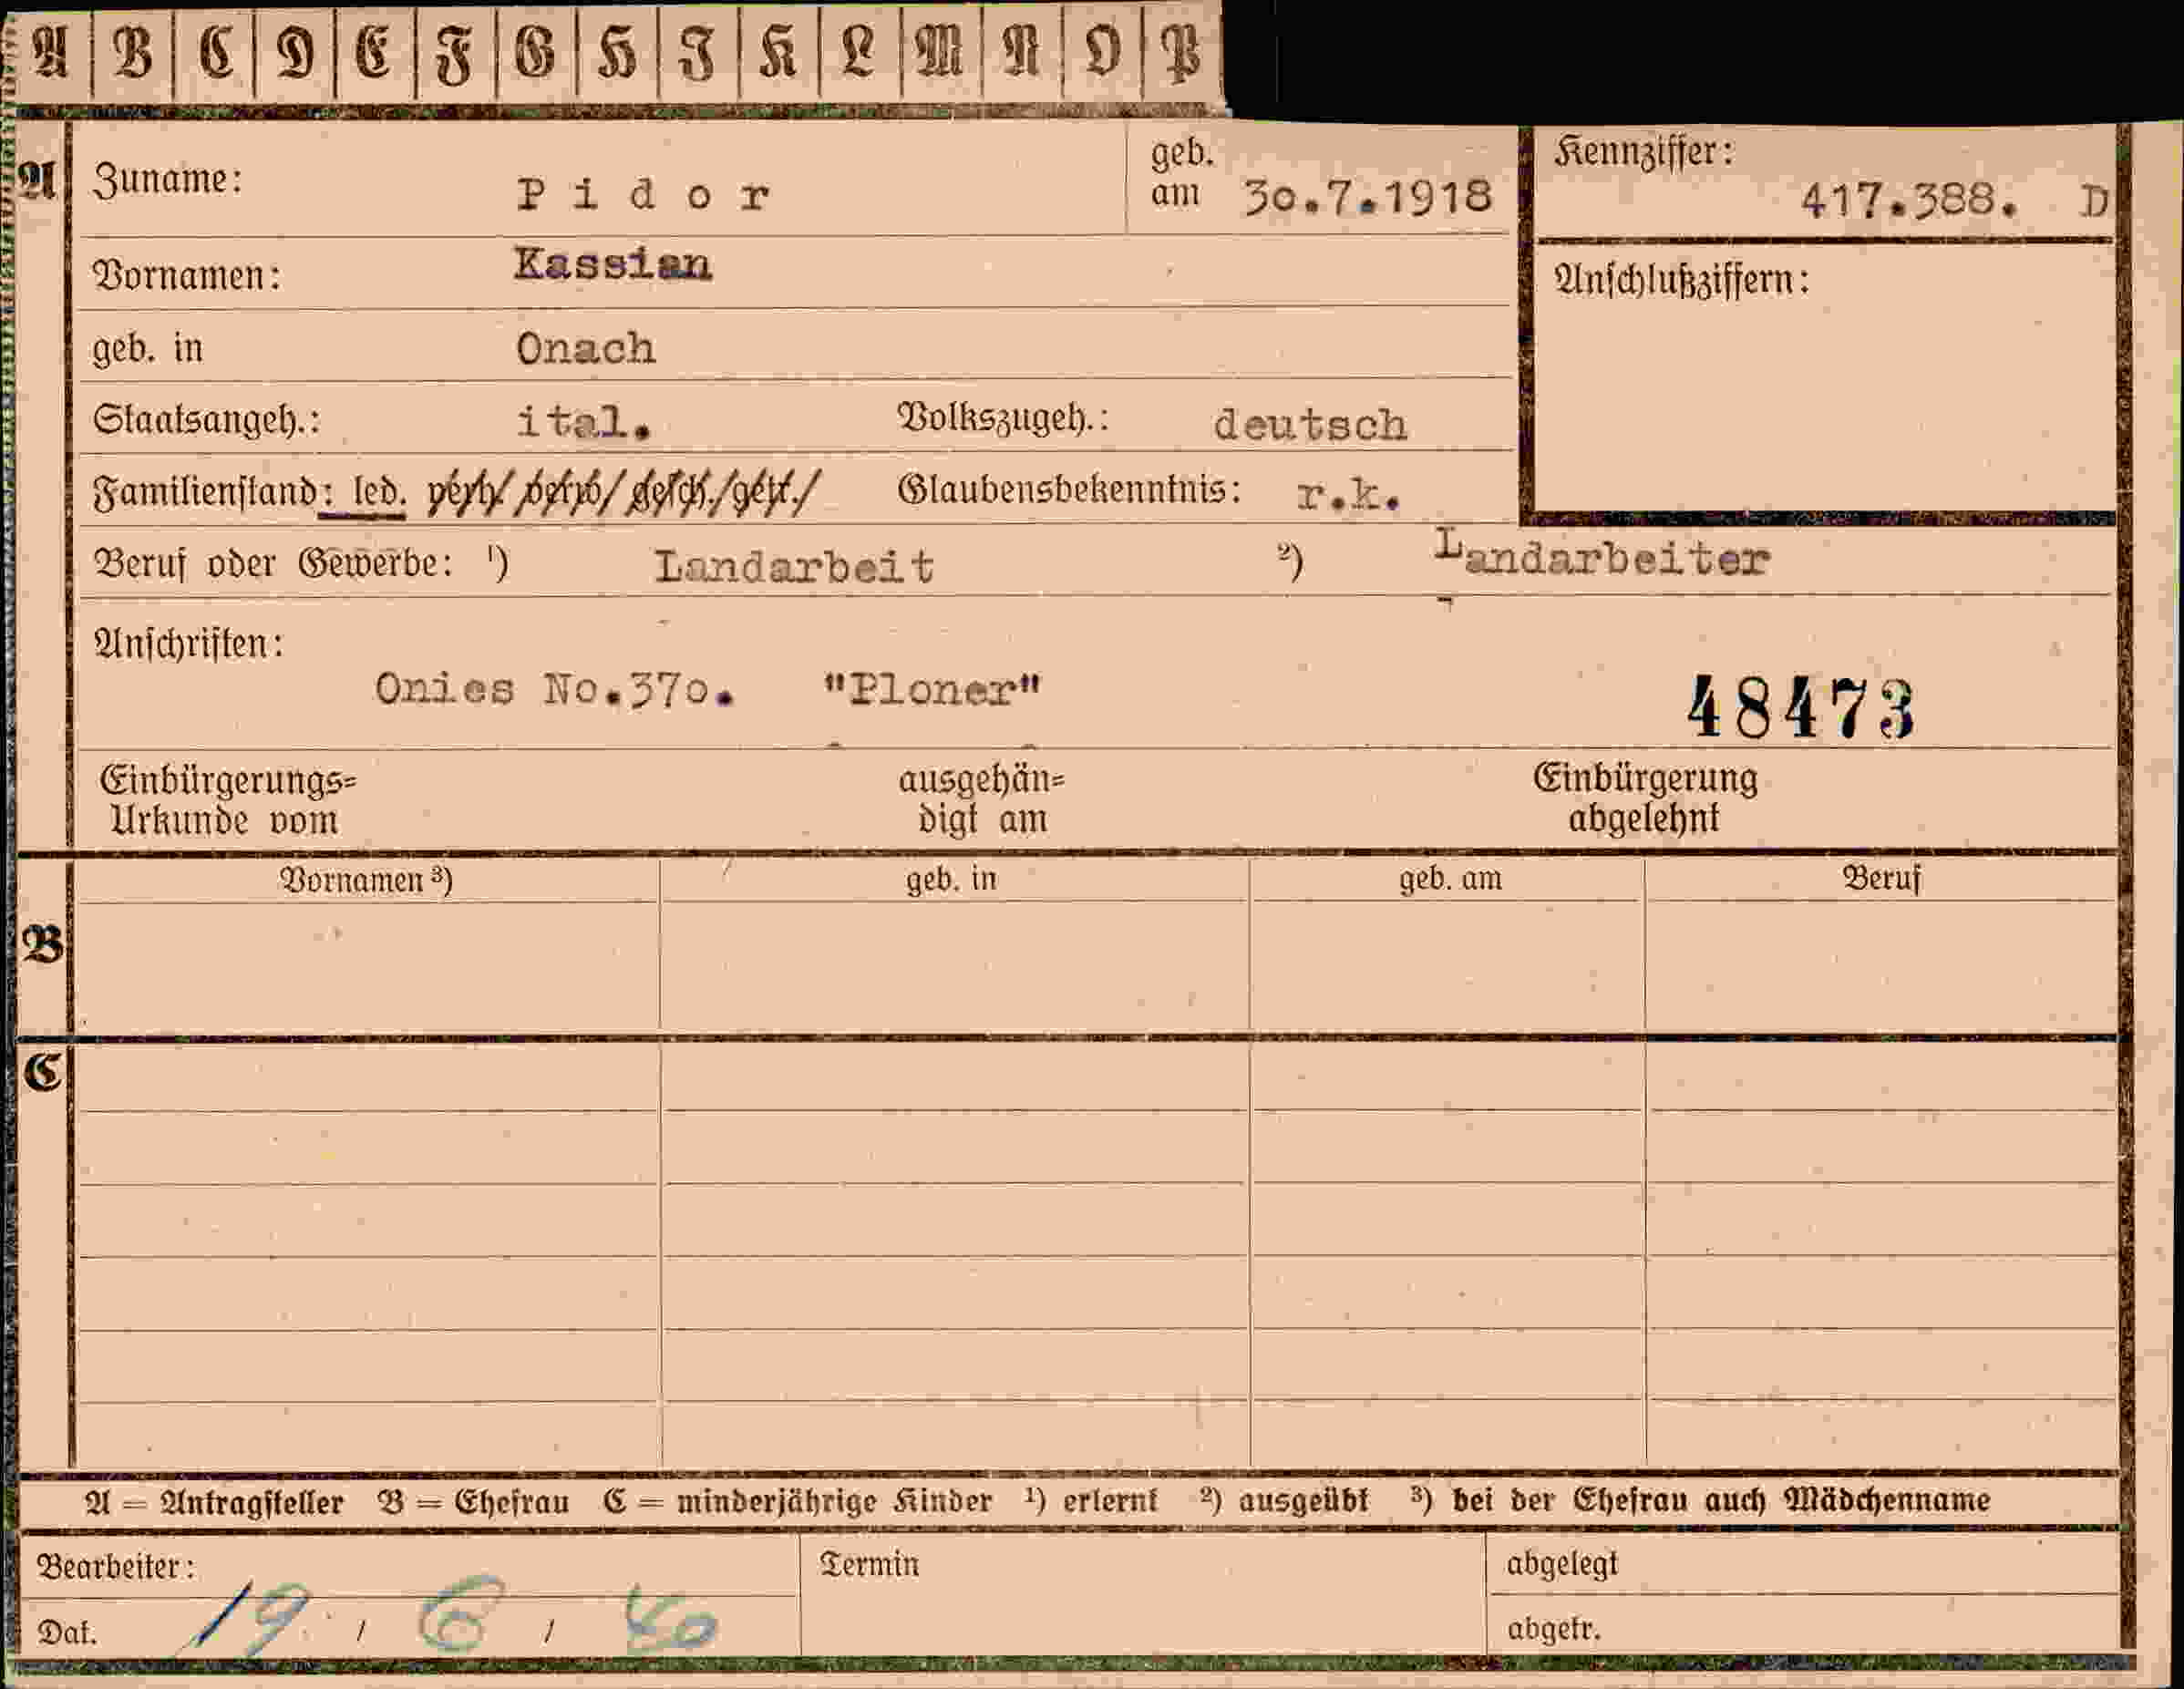 A B C D E F G H I K L M N O P
A Zuname: Pidor geb. am 30.7.1918 Kennziffer: 417.388. D
Vornamen: Kassian Anschlußziffern:
geb. in Onach
Staatsangeh.: ital. Volkszugeh.: deutsch
Familienstand: led. verh. verw. gesch. getr. Glaubensbekenntnis: r.k.
Beruf oder Gewerbe: ¹) Landarbeit ²) Landarbeiter
Anschriften:
Onies No.370. "Ploner" 48473
Einbürgerungs= ausgehän= Einbürgerung
Urkunde vom digt am abgelehnt
Vornamen ³) geb. in geb. am Beruf
B
C
A = Antragsteller B = Ehefrau C = minderjährige Kinder ¹) erlernt ²) ausgeübt ³) bei der Ehefrau auch Mädchenname
Bearbeiter: Termin abgelegt
Dat. 19 / 6 / 40 abgetr.